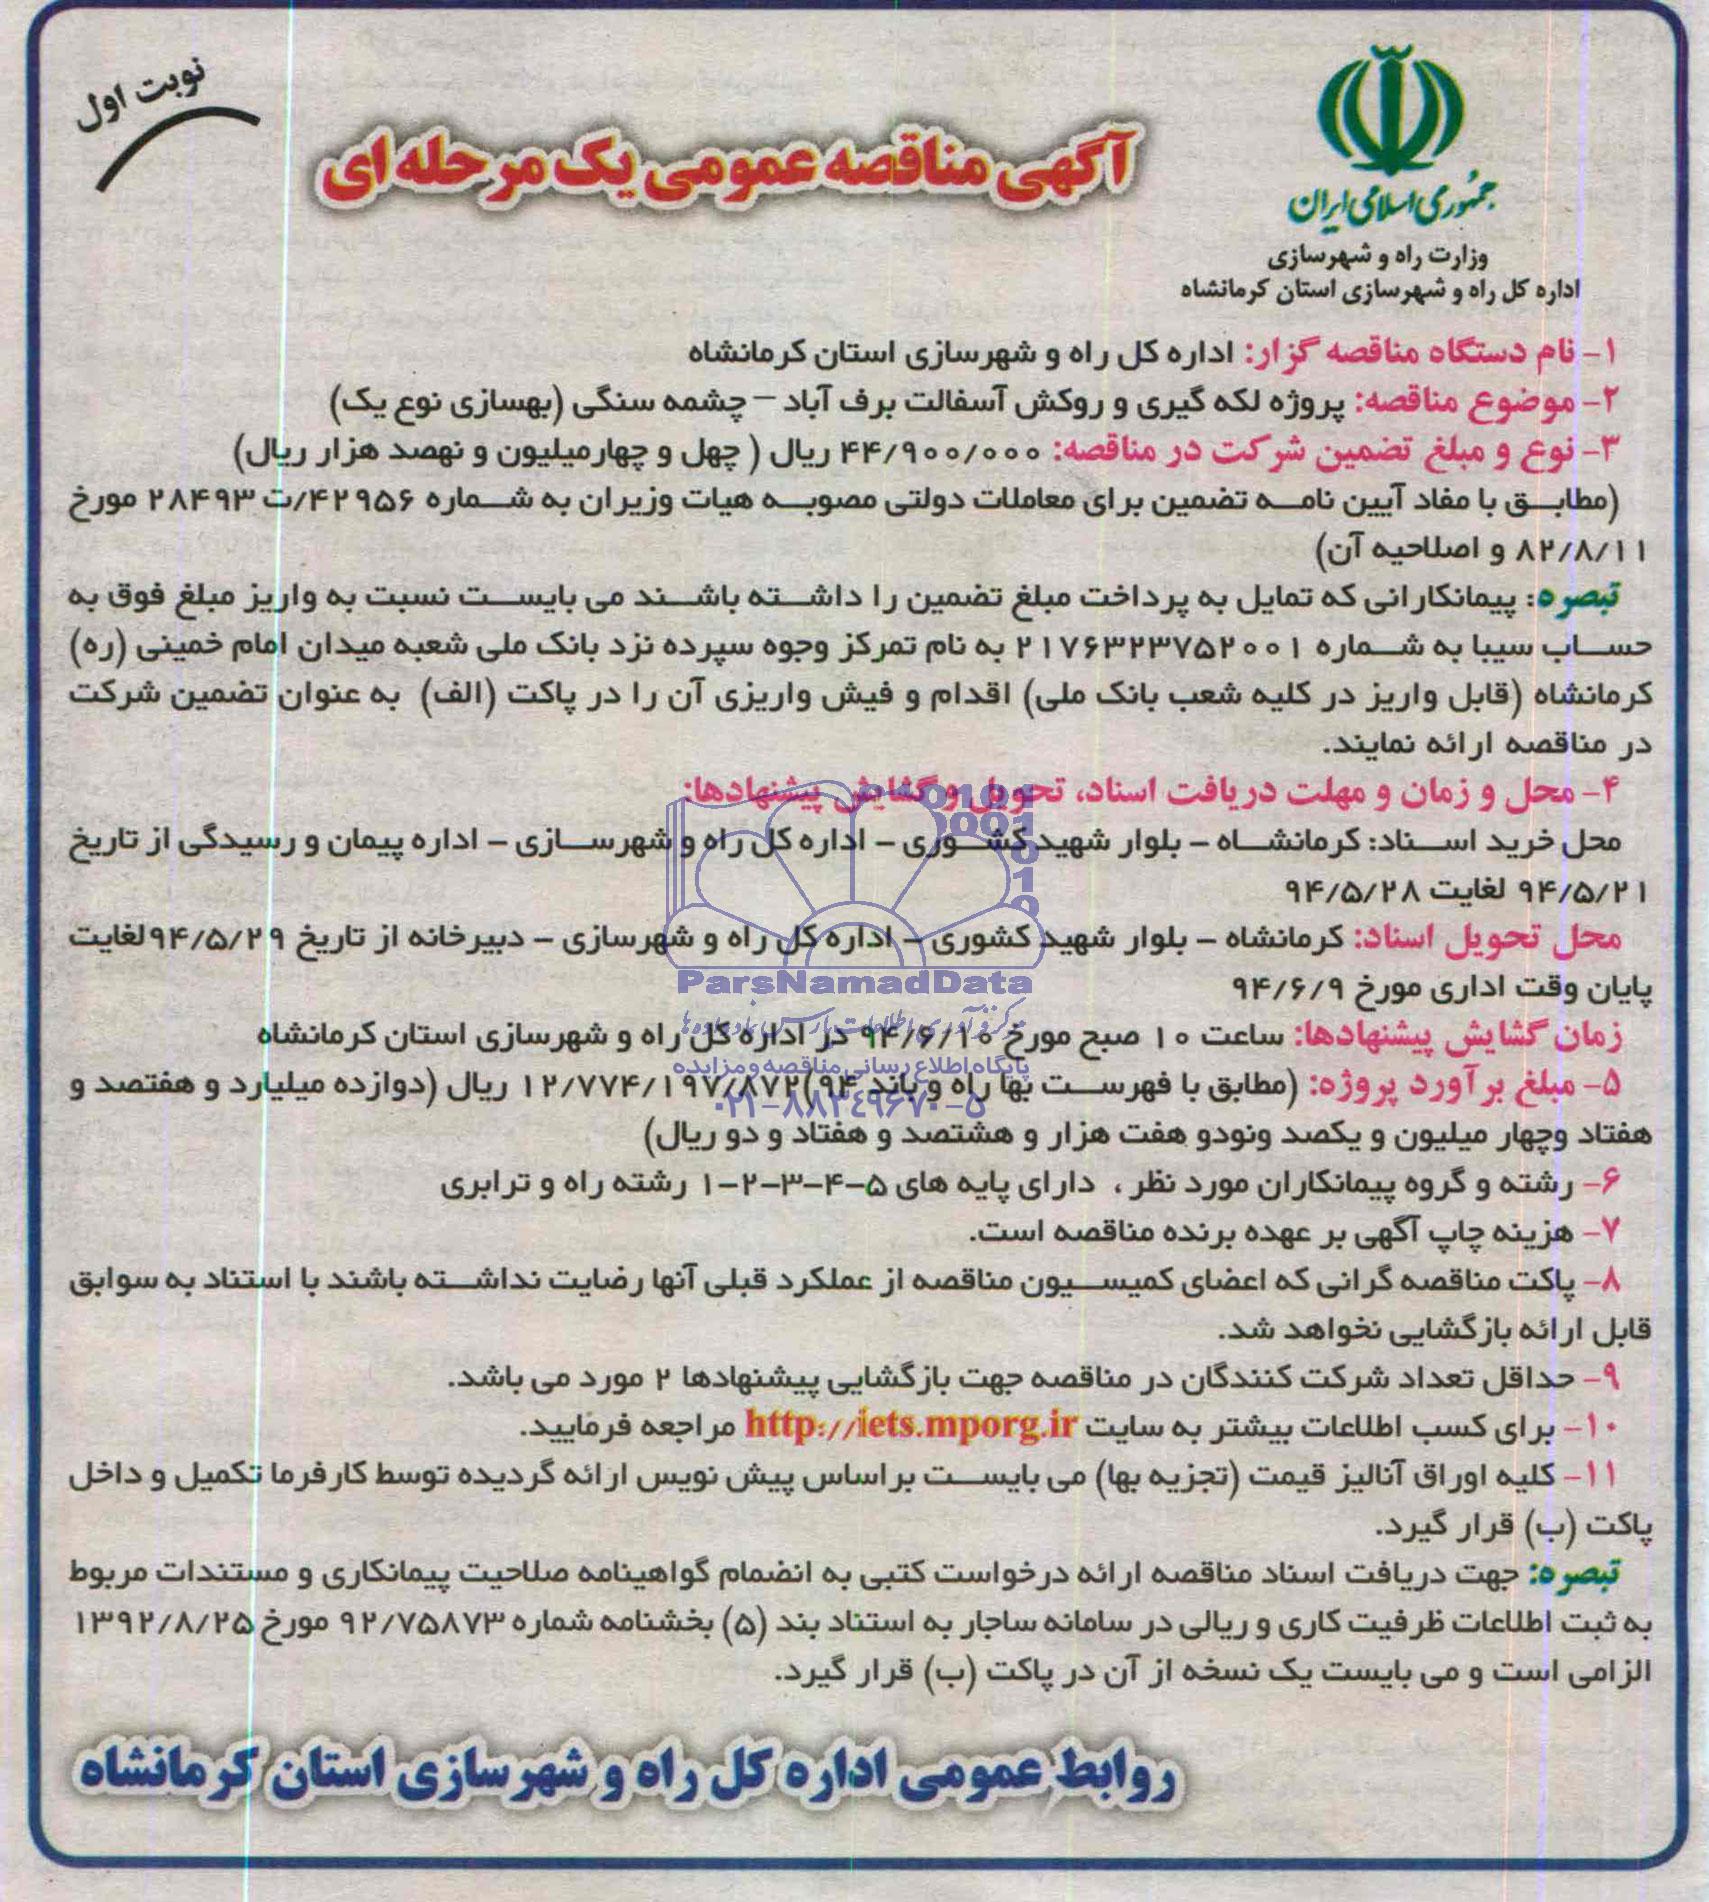 نوبت اول
جمهوری اسلامی ایران
وزارت راه و شهرسازی
اداره کل راه و شهرسازی استان کرمانشاه
آگهی مناقصه عمومی یک مرحله ای
۱- نام دستگاه مناقصه گزار: اداره کل راه و شهرسازی استان کرمانشاه
۲- موضوع مناقصه: پروژه لکه گیری و روکش آسفالت برف آباد – چشمه سنگی (بهسازی نوع یک)
۳- نوع و مبلغ تضمین شرکت در مناقصه: ۴۴/۹۰۰/۰۰۰ ریال ( چهل و چهارمیلیون و نهصد هزار ریال)
(مطابق با مفاد آیین نامه تضمین برای معاملات دولتی مصوبه هیات وزیران به شماره ۴۲۹۵۶/ت ۲۸۴۹۳ مورخ
۸۲/۸/۱۱ و اصلاحیه آن)
تبصره: پیمانکارانی که تمایل به پرداخت مبلغ تضمین را داشته باشند می بایست نسبت به واریز مبلغ فوق به
حساب سیبا به شماره ۲۱۷۶۳۲۳۷۵۲۰۰۱ به نام تمرکز وجوه سپرده نزد بانک ملی شعبه میدان امام خمینی (ره)
کرمانشاه (قابل واریز در کلیه شعب بانک ملی) اقدام و فیش واریزی آن را در پاکت (الف) به عنوان تضمین شرکت
در مناقصه ارائه نمایند.
۴- محل و زمان و مهلت دریافت اسناد، تحویل و گشایش پیشنهادها:
محل خرید اسناد: کرمانشاه – بلوار شهید کشوری – اداره کل راه و شهرسازی – اداره پیمان و رسیدگی از تاریخ
۹۴/۵/۲۱ لغایت ۹۴/۵/۲۸
محل تحویل اسناد: کرمانشاه – بلوار شهید کشوری – اداره کل راه و شهرسازی – دبیرخانه از تاریخ ۹۴/۵/۲۹ لغایت
پایان وقت اداری مورخ ۹۴/۶/۹
زمان گشایش پیشنهادها: ساعت ۱۰ صبح مورخ ۹۴/۶/۱۰ در اداره کل راه و شهرسازی استان کرمانشاه
۵- مبلغ برآورد پروژه: (مطابق با فهرست بها راه و باند ۹۴) ۱۲/۷۷۴/۱۹۷/۸۷۲ ریال (دوازده میلیارد و هفتصد و
هفتاد وچهار میلیون و یکصد ونودو هفت هزار و هشتصد و هفتاد و دو ریال)
۶- رشته و گروه پیمانکاران مورد نظر ، دارای پایه های ۵-۴-۳-۲-۱ رشته راه و ترابری
۷- هزینه چاپ آگهی بر عهده برنده مناقصه است.
۸- پاکت مناقصه گرانی که اعضای کمیسیون مناقصه از عملکرد قبلی آنها رضایت نداشته باشند با استناد به سوابق
قابل ارائه بازگشایی نخواهد شد.
۹- حداقل تعداد شرکت کنندگان در مناقصه جهت بازگشایی پیشنهادها ۲ مورد می باشد.
۱۰- برای کسب اطلاعات بیشتر به سایت http://iets.mporg.ir مراجعه فرمایید.
۱۱- کلیه اوراق آنالیز قیمت (تجزیه بها) می بایست براساس پیش نویس ارائه گردیده توسط کارفرما تکمیل و داخل
پاکت (ب) قرار گیرد.
تبصره: جهت دریافت اسناد مناقصه ارائه درخواست کتبی به انضمام گواهینامه صلاحیت پیمانکاری و مستندات مربوط
به ثبت اطلاعات ظرفیت کاری و ریالی در سامانه ساجار به استناد بند (۵) بخشنامه شماره ۹۲/۷۵۸۷۳ مورخ ۱۳۹۲/۸/۲۵
الزامی است و می بایست یک نسخه از آن در پاکت (ب) قرار گیرد.
روابط عمومی اداره کل راه و شهرسازی استان کرمانشاه
ParsNamadData
مرکز فرآوری اطلاعات پارس نماد داده ها
پایگاه اطلاع رسانی مناقصه و مزایده
۰۲۱-۸۸۳۴۹۶۷۰-۵